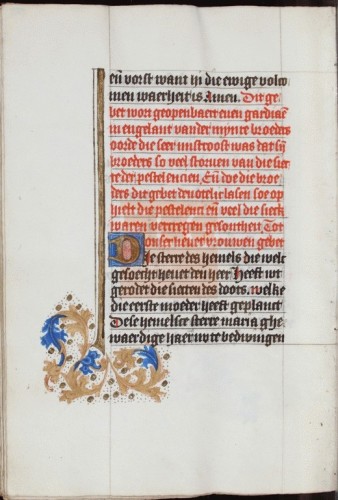 en̄ vorst want in die ewige volco
men waerheit is Amen. Dit ge
bet wort geopenbaert enen gardiae͞
in engelant vander mynre broeders
oorde die seer mistroost was dat sy͞
broeders so veel storven van die siec
te der pestelencien En̄ doe die broe
des dit gebet devotelic lasen soe op
hielt die pestelenci en̄ veel die siech
waren vercregen gesontheit Tot
onser liever vrouwen gebet
Die sterre des hemels die welc
gesoecht hevet den heer Heeft wt
gerodet die siecten des doots. welke
die eerste moeder heeft geplant
Dese hemelse sterre maria ghe
waerdige haer nv te bedwingen